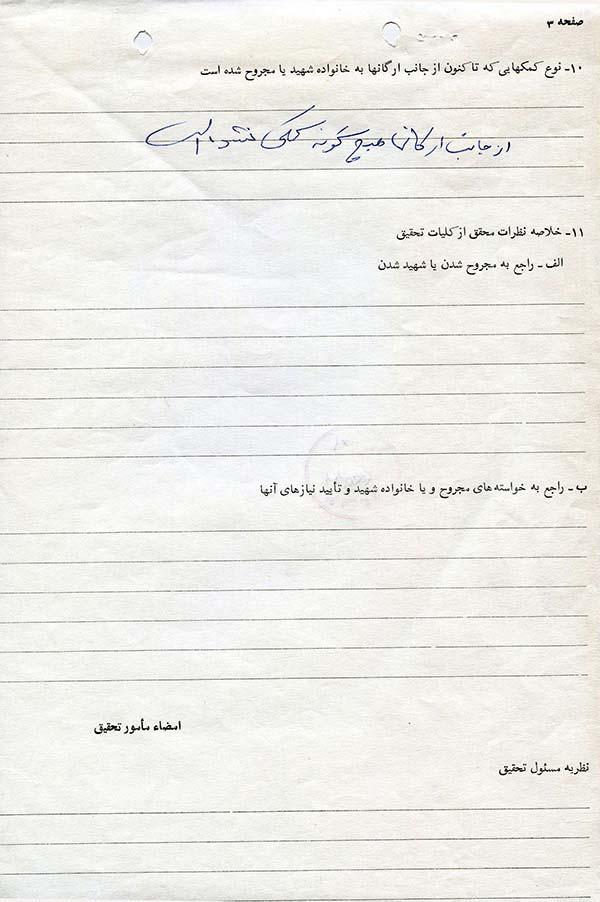 صفحه ۳
۱۰- نوع کمکهایی که تا کنون از جانب ارگانها به خانواده شهید یا مجروح شده است
از جانب ارگانها هیچ گونه کمکی نشده است
۱۱- خلاصه نظرات محقق از کلیات تحقیق
الف - راجع به مجروح شدن یا شهید شدن
ب - راجع به خواسته‌های مجروح و یا خانواده شهید و تأیید نیازهای آنها
امضاء مأمور تحقیق
نظریه مسئول تحقیق